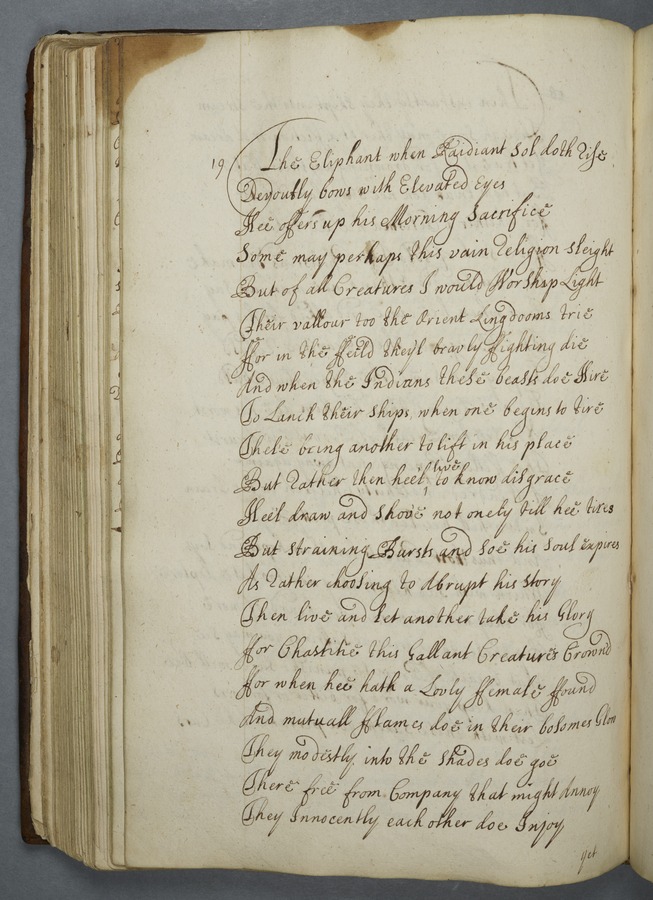 19
The Eliphant when Raidiant Sol doth rise
Devoutly bows with Elevated Eyes
Hee offers up his Morning Sacrifice
Some may perhaps this vain religion sleight
But of all Creatures I would Worship Light
Their vallour too the Orient Kingdooms trie
ffor in the ffeild they'l bravly ffighting die
And when the Indians these beasts doe Hire
To Lanch their ships, when one begins to tire
These bring another to lift in his place
But rather then heel live to know disgrace
Heel draw and shove not onely till hee tires
But straining Bursts and soe his soul expires
As rather choosing to Abrupt his story
Then live and let another take his Glory
ffor Chastitie this Gallant Creature's Crownd
ffor when hee hath a Lovly ffemale ffound
And mutuall fflames doe in their bosomes Glow
They modestly into the shades doe goe
There free from Company that might Annoy
They Innocently each other doe Injoy
yet